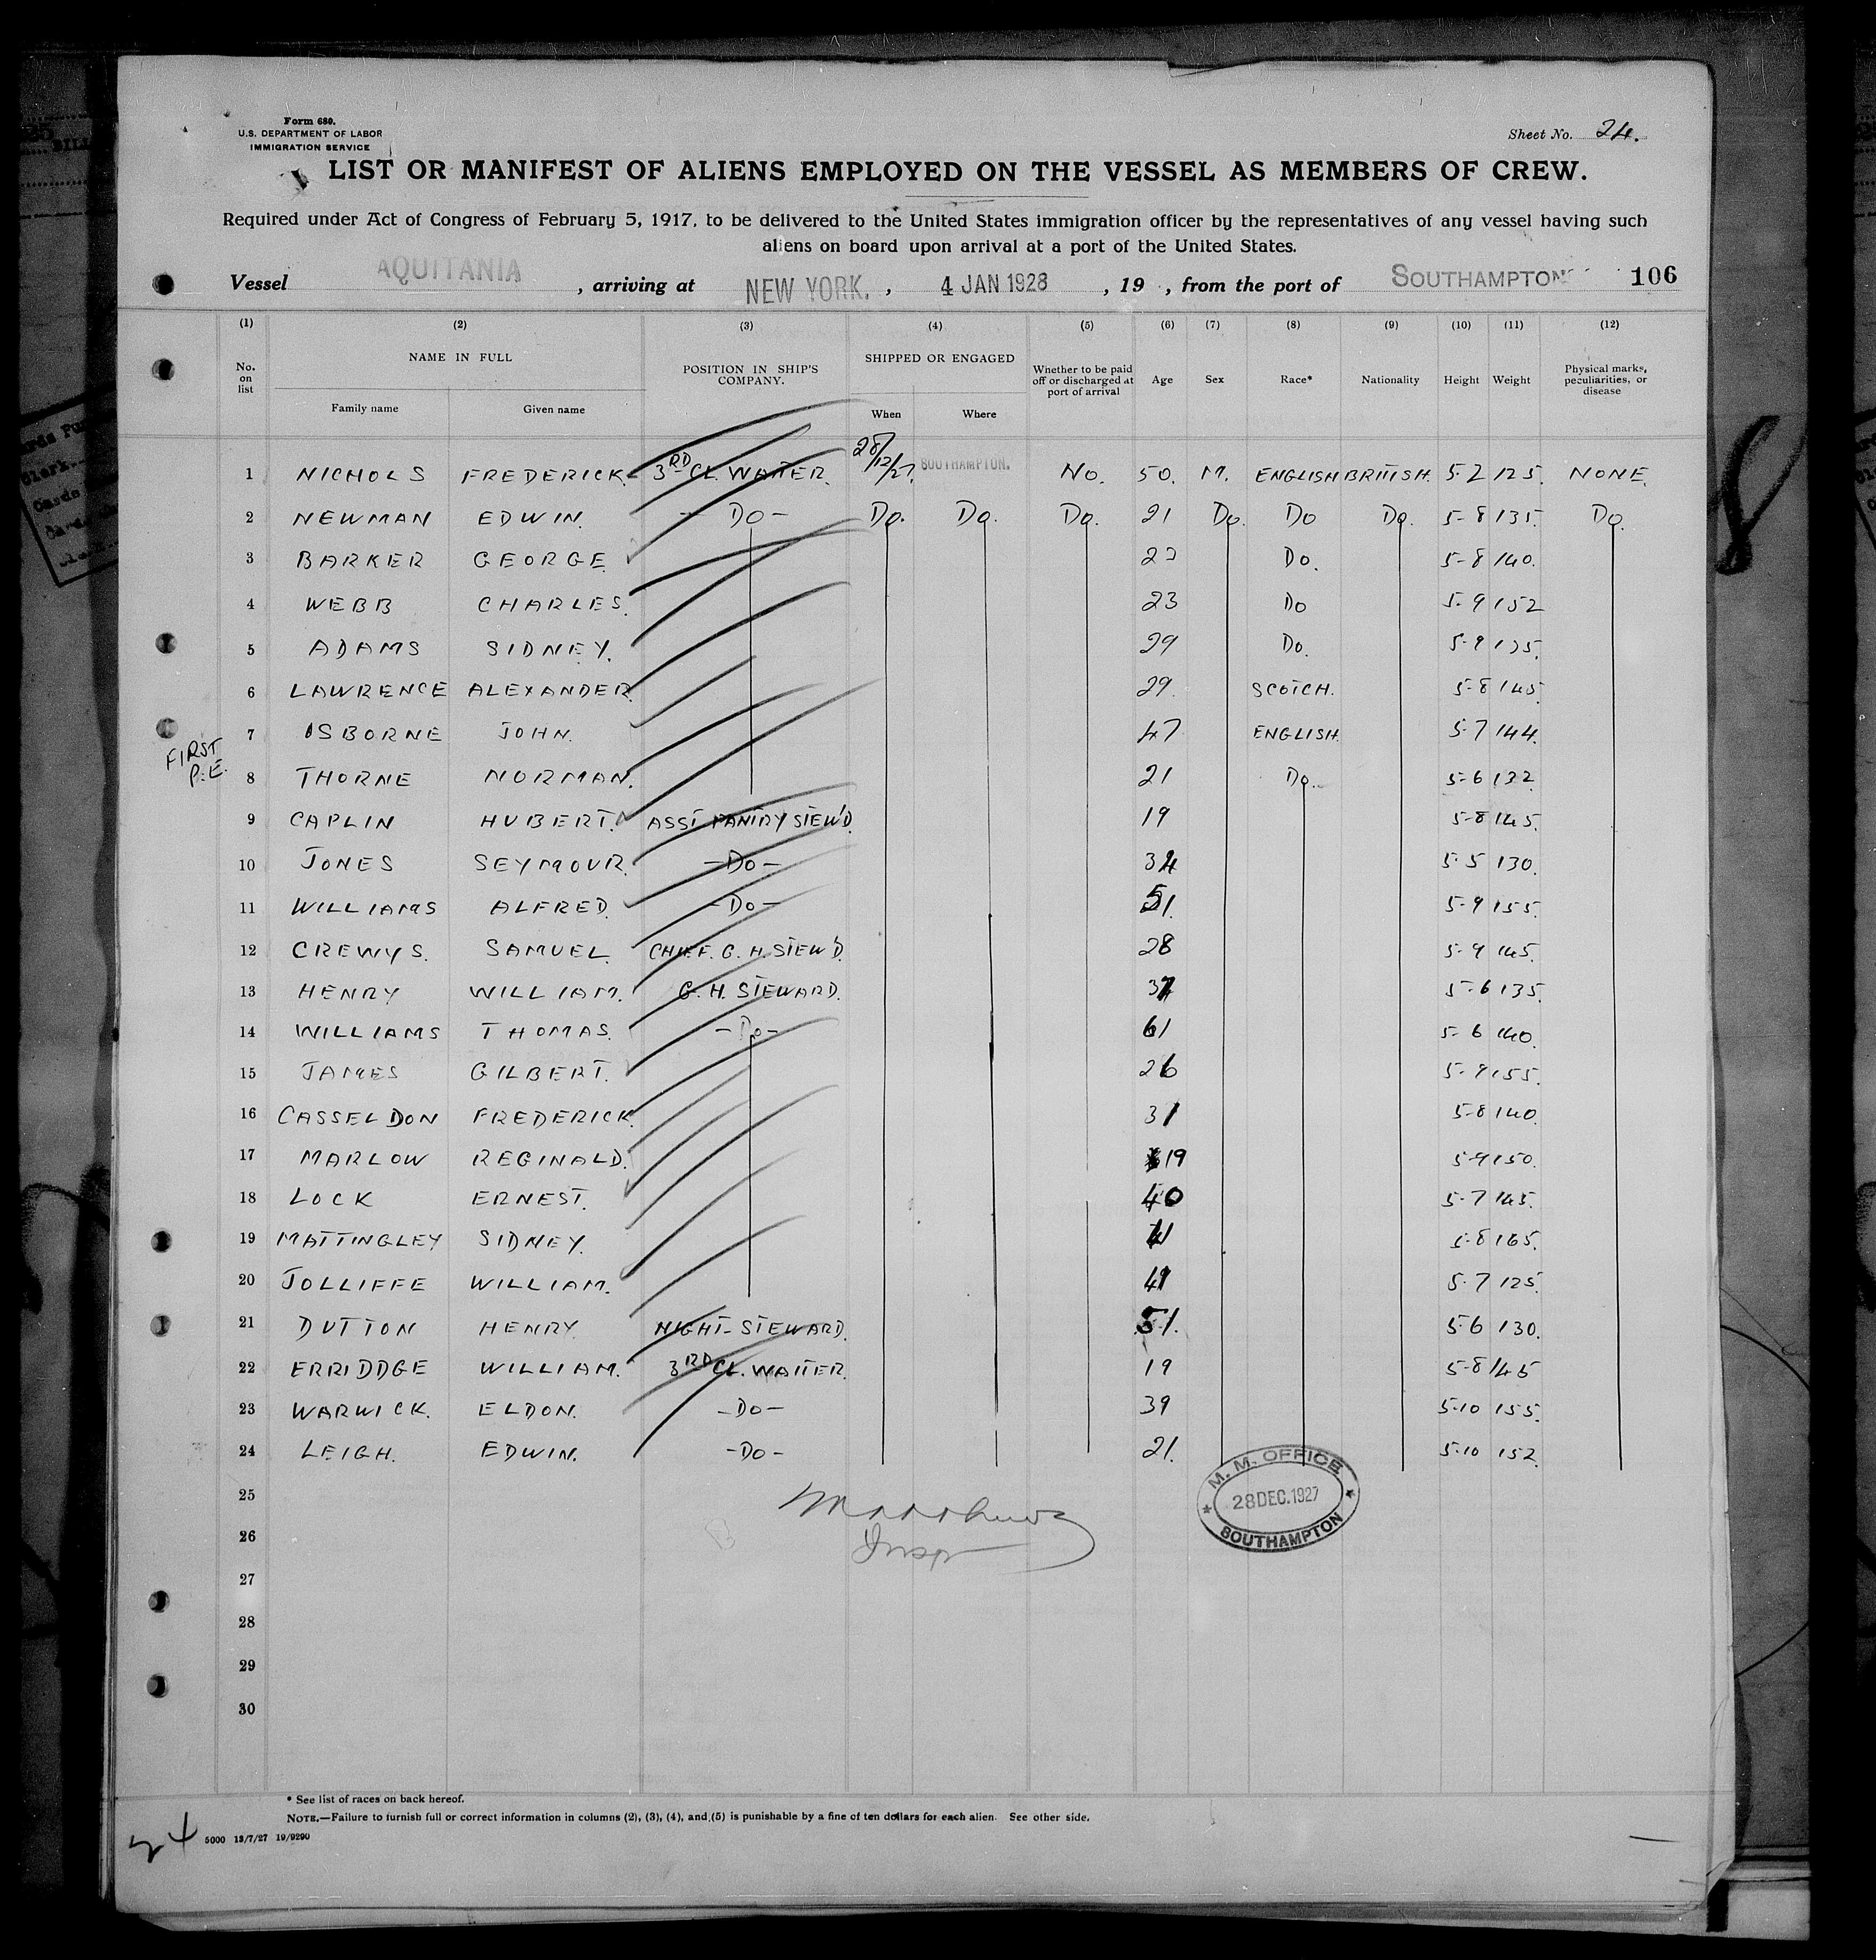 Form 680.
U.S. DEPARTMENT OF LABOR
IMMIGRATION SERVICE
Sheet No. 24.
LIST OR MANIFEST OF ALIENS EMPLOYED ON THE VESSEL AS MEMBERS OF CREW.
Required under Act of Congress of February 5, 1917, to be delivered to the United States immigration officer by the representatives of any vessel having such
aliens on board upon arrival at a port of the United States.
Vessel AQUITANIA, arriving at NEW YORK, 4 JAN 1928, 19 , from the port of SOUTHAMPTON 106
(1) (2) (3) (4) (5) (6) (7) (8) (9) (10) (11) (12)
No. on list NAME IN FULL POSITION IN SHIP'S COMPANY. SHIPPED OR ENGAGED Whether to be paid off or discharged at port of arrival Age Sex Race* Nationality Height Weight Physical marks, peculiarities, or disease
Family name Given name When Where
1 NICHOLS FREDERICK 3RD CL. WAITER. 28/12/27. SOUTHAMPTON. NO. 50. M. ENGLISH BRITISH. 5-2 125. NONE.
2 NEWMAN EDWIN. - DO - DO. DO. DO. 21 DO. DO DO. 5-8 135. DO.
3 BARKER GEORGE DO. 5-8 140.
4 WEBB CHARLES. 23 DO 5-9 152
5 ADAMS SIDNEY. 29 DO. 5-9
6 LAWRENCE ALEXANDER 29. SCOTCH. 5-8 145
7 OSBORNE JOHN. 47 ENGLISH. 5-7 144.
FIRST
P.E.
8 THORNE NORMAN. 21 DO. 5-6 132.
9 CAPLIN HUBERT. ASST PANTRY STEW'D. 19 5-8 145.
10 JONES SEYMOUR. - DO - 34 5-5 130.
11 WILLIAMS ALFRED. - DO - 51. 5-9 155.
12 CREWYS. SAMUEL. CHIEF. G. H. STEW'D. 28 5-9 145.
13 HENRY WILLIAM. G. H. STEWARD. 37 5-6 135.
14 WILLIAMS THOMAS. - DO - 61 5-6 140.
15 JAMES GILBERT. 26 5-9 155.
16 CASSELDON FREDERICK. 31 5-8 140.
17 MARLOW REGINALD. 19 5-9 150.
18 LOCK ERNEST. 40 5-7 145.
19 MATTINGLEY SIDNEY. 41 5-8 165.
20 JOLLIFFE WILLIAM. 41 5-7 125.
21 DUTTON HENRY. NIGHT-STEWARD. 51. 5-6 130.
22 ERRIDDGE WILLIAM. 3RD CL. WAITER. 19 5-8 145
23 WARWICK. ELDON. - DO - 39 5-10 155.
24 LEIGH. EDWIN. - DO - 21. 5-10 152.
25
M. M. OFFICE
28 DEC. 1927
SOUTHAMPTON
26
27
28
29
30
* See list of races on back hereof.
NOTE.—Failure to furnish full or correct information in columns (2), (3), (4), and (5) is punishable by a fine of ten dollars for each alien. See other side.
24 5000 13/7/27 19/9290